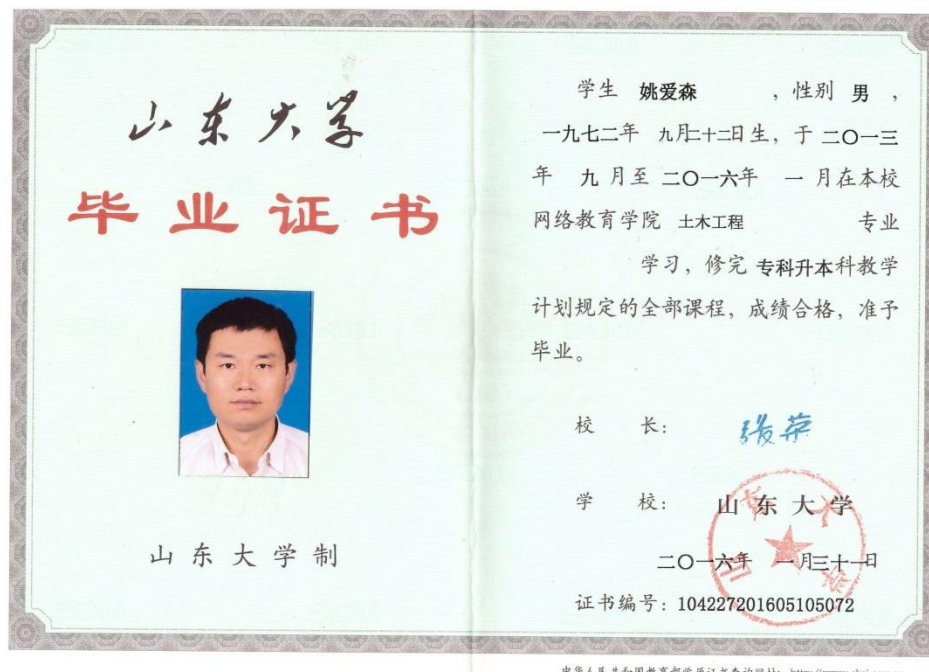 山东大学
毕业证书
山东大学制
学生 姚爱森 ，性别 男 ，
一九七二年 九月二十二日生，于 二〇一三
年 九 月至 二〇一六年 一 月在本校
网络教育学院 土木工程 专业
学习，修完 专科升本科教学
计划规定的全部课程，成绩合格，准予
毕业。
校 长：
学 校： 山东大学
山东大学
二〇一六年 一月三十一日
证书编号：104227201605105072
中华人民共和国教育部学历证书查询网址：